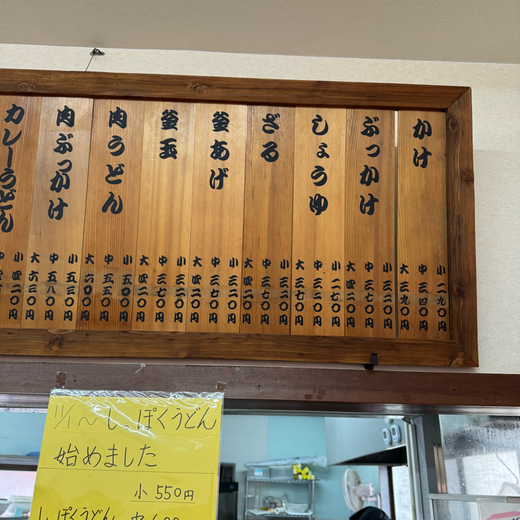 かけ
小 二九〇円
中 三四〇円
大 三九〇円
ぶっかけ
小 三二〇円
中 三七〇円
大 四二〇円
しょうゆ
小 二七〇円
中 三二〇円
ざる
小 三二〇円
中 三七〇円
大 四二〇円
釜あげ
小 三二〇円
中 三七〇円
大 四二〇円
釜玉
小 三二〇円
中 三七〇円
大 四二〇円
肉うどん
小 五〇〇円
中 五五〇円
大 六〇〇円
肉ぶっかけ
小 五三〇円
中 五八〇円
大 六三〇円
カレーうどん
小
中
11/1〜しっぽくうどん
始めました
小 550円
しっぽくうどん 中